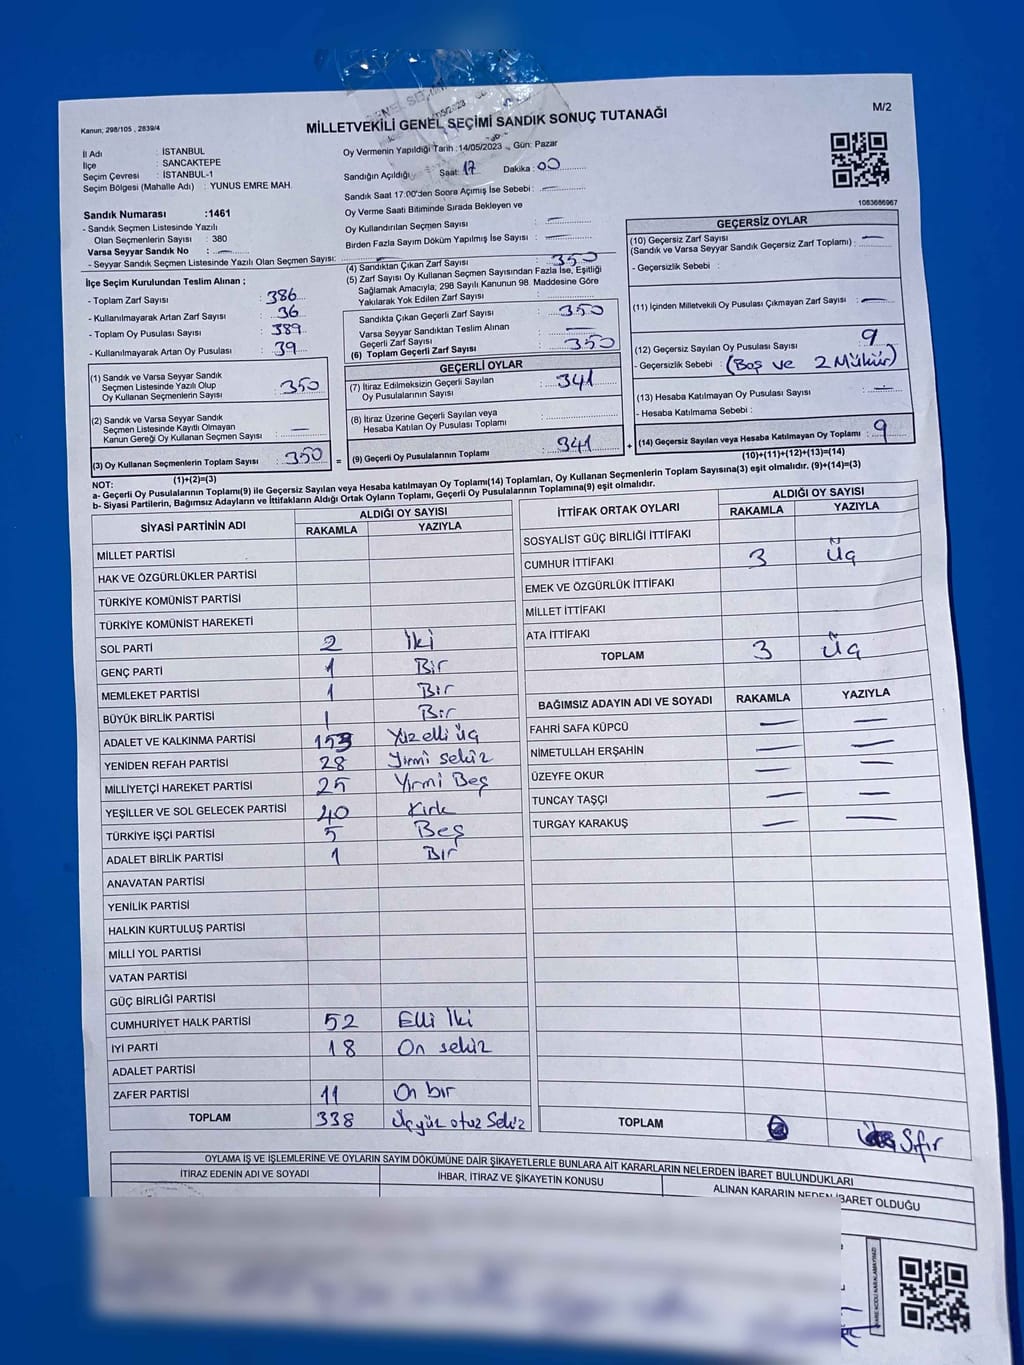 Kanun, 298/105 , 2839/4
MİLLETVEKİLİ GENEL SEÇİMİ SANDIK SONUÇ TUTANAĞI
M/2
İl Adı : İSTANBUL
İlçe : SANCAKTEPE
Seçim Çevresi : İSTANBUL-1
Seçim Bölgesi (Mahalle Adı) : YUNUS EMRE MAH.
Sandık Numarası :1461
- Sandık Seçmen Listesinde Yazılı
Olan Seçmenlerin Sayısı : 380
Varsa Seyyar Sandık No : —
- Seyyar Sandık Seçmen Listesinde Yazılı Olan Seçmen Sayısı: —
Oy Vermenin Yapıldığı Tarih :14/05/2023 Gün: Pazar
Sandığın Açıldığı Saat: 17 Dakika : 00
Sandık Saat 17:00'den Sonra Açımış İse Sebebi : —
Oy Verme Saati Bitiminde Sırada Bekleyen ve
Oy Kullandırılan Seçmen Sayısı : —
Birden Fazla Sayım Döküm Yapılmış İse Sayısı : —
1083686967
İlçe Seçim Kurulundan Teslim Alınan ;
- Toplam Zarf Sayısı : 386
- Kullanılmayarak Artan Zarf Sayısı : 36
- Toplam Oy Pusulası Sayısı : 389
- Kullanılmayarak Artan Oy Pusulası : 39
(1) Sandık ve Varsa Seyyar Sandık
Seçmen Listesinde Yazılı Olup
Oy Kullanan Seçmenlerin Sayısı : 350
(2) Sandık ve Varsa Seyyar Sandık
Seçmen Listesinde Kayıtlı Olmayan
Kanun Gereği Oy Kullanan Seçmen Sayısı : —
(3) Oy Kullanan Seçmenlerin Toplam Sayısı : 350
(1)+(2)=(3)
(4) Sandıktan Çıkan Zarf Sayısı : 350
(5) Zarf Sayısı Oy Kullanan Seçmen Sayısından Fazla İse, Eşitliği
Sağlamak Amacıyla; 298 Sayılı Kanunun 98. Maddesine Göre
Yakılarak Yok Edilen Zarf Sayısı :
Sandıkta Çıkan Geçerli Zarf Sayısı : 350
Varsa Seyyar Sandıktan Teslim Alınan
Geçerli Zarf Sayısı : —
(6) Toplam Geçerli Zarf Sayısı : 350
GEÇERLİ OYLAR
(7) İtiraz Edilmeksizin Geçerli Sayılan
Oy Pusulalarının Sayısı : 341
(8) İtiraz Üzerine Geçerli Sayılan veya
Hesaba Katılan Oy Pusulası Toplamı :
= (9) Geçerli Oy Pusulalarının Toplamı : 341 +
GEÇERSİZ OYLAR
(10) Geçersiz Zarf Sayısı
(Sandık ve Varsa Seyyar Sandık Geçersiz Zarf Toplamı) : —
- Geçersizlik Sebebi :
(11) İçinden Milletvekili Oy Pusulası Çıkmayan Zarf Sayısı : —
(12) Geçersiz Sayılan Oy Pusulası Sayısı : 9
- Geçersizlik Sebebi : (Boş ve 2 Mühür)
(13) Hesaba Katılmayan Oy Pusulası Sayısı : —
- Hesaba Katılmama Sebebi :
(14) Geçersiz Sayılan veya Hesaba Katılmayan Oy Toplamı : 9
(10)+(11)+(12)+(13)=(14)
NOT:
a- Geçerli Oy Pusulalarının Toplamı(9) ile Geçersiz Sayılan veya Hesaba katılmayan Oy Toplamı(14) Toplamları, Oy Kullanan Seçmenlerin Toplam Sayısına(3) eşit olmalıdır. (9)+(14)=(3)
b- Siyasi Partilerin, Bağımsız Adayların ve İttifakların Aldığı Ortak Oyların Toplamı, Geçerli Oy Pusulalarının Toplamına(9) eşit olmalıdır.
SİYASİ PARTİNİN ADI ALDIĞI OY SAYISI
RAKAMLA YAZIYLA
MİLLET PARTİSİ
HAK VE ÖZGÜRLÜKLER PARTİSİ
TÜRKİYE KOMÜNİST PARTİSİ
TÜRKİYE KOMÜNİST HAREKETİ
SOL PARTİ 2 İki
GENÇ PARTİ 1 Bir
MEMLEKET PARTİSİ 1 Bir
BÜYÜK BİRLİK PARTİSİ 1 Bir
ADALET VE KALKINMA PARTİSİ 153 Yüzelli üç
YENİDEN REFAH PARTİSİ 28 Yirmi sekiz
MİLLİYETÇİ HAREKET PARTİSİ 25 Yirmi Beş
YEŞİLLER VE SOL GELECEK PARTİSİ 40 Kırk
TÜRKİYE İŞÇİ PARTİSİ 5 Beş
ADALET BİRLİK PARTİSİ 1 Bir
ANAVATAN PARTİSİ
YENİLİK PARTİSİ
HALKIN KURTULUŞ PARTİSİ
MİLLİ YOL PARTİSİ
VATAN PARTİSİ
GÜÇ BİRLİĞİ PARTİSİ
CUMHURİYET HALK PARTİSİ 52 Elli İki
İYİ PARTİ 18 On sekiz
ADALET PARTİSİ
ZAFER PARTİSİ 11 On bir
TOPLAM 338 Üçyüz otuz Sekiz
İTTİFAK ORTAK OYLARI ALDIĞI OY SAYISI
RAKAMLA YAZIYLA
SOSYALİST GÜÇ BİRLİĞİ İTTİFAKI
CUMHUR İTTİFAKI 3 Üç
EMEK VE ÖZGÜRLÜK İTTİFAKI
MİLLET İTTİFAKI
ATA İTTİFAKI
TOPLAM 3 Üç
BAĞIMSIZ ADAYIN ADI VE SOYADI RAKAMLA YAZIYLA
FAHRİ SAFA KÜPCÜ — —
NİMETULLAH ERŞAHİN — —
ÜZEYFE OKUR — —
TUNCAY TAŞÇI — —
TURGAY KARAKUŞ — —
TOPLAM Sıfır
OYLAMA İŞ VE İŞLEMLERİNE VE OYLARIN SAYIM DÖKÜMÜNE DAİR ŞİKAYETLERLE BUNLARA AİT KARARLARIN NELERDEN İBARET BULUNDUKLARI
İTİRAZ EDENİN ADI VE SOYADI İHBAR, İTİRAZ VE ŞİKAYETİN KONUSU ALINAN KARARIN NEDEN İBARET OLDUĞU